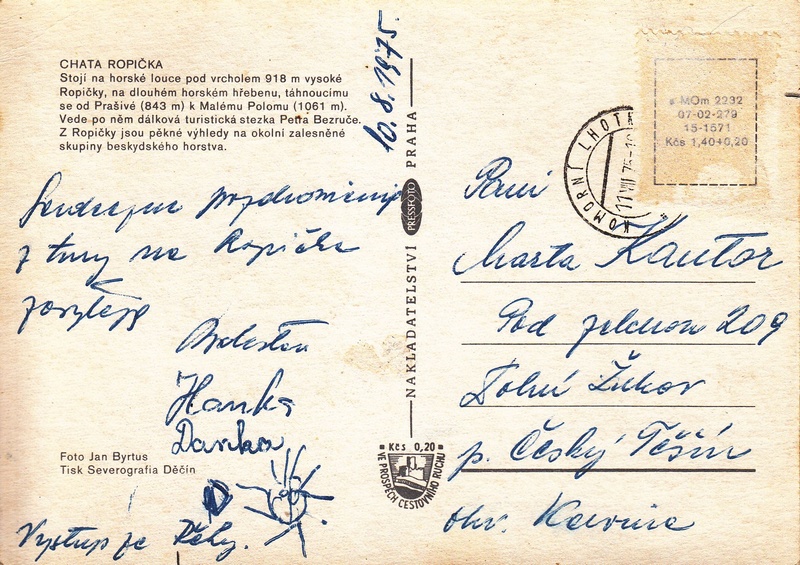 CHATA ROPIČKA
Stojí na horské louce pod vrcholem 918 m vysoké
Ropičky, na dlouhém horském hřebenu, táhnoucímu
se od Prašivé (843 m) k Malému Polomu (1061 m).
Vede po něm dálková turistická stezka Petra Bezruče.
Z Ropičky jsou pěkné výhledy na okolní zalesněné
skupiny beskydského horstva.
10.8.1975.
Serdeczne pozdrowienia
z tury na Ropiczkę
Hanka
Danka
Foto Jan Byrtus
Tisk Severografia Děčín
Występ ze
NAKLADATELSTVÍ PRESSFOTO PRAHA
Kčs 0,20
VE PROSPĚCH CESTOVNÍHO RUCHU
KOMORNÍ LHOTK
11 VIII 75
MOm 2232
07-02-279
15-1571
Kčs 1,40+0,20
Pani
Marta Kantor
Pod 209
Dolní Žukov
p. Český Těšín
okr. Karvina